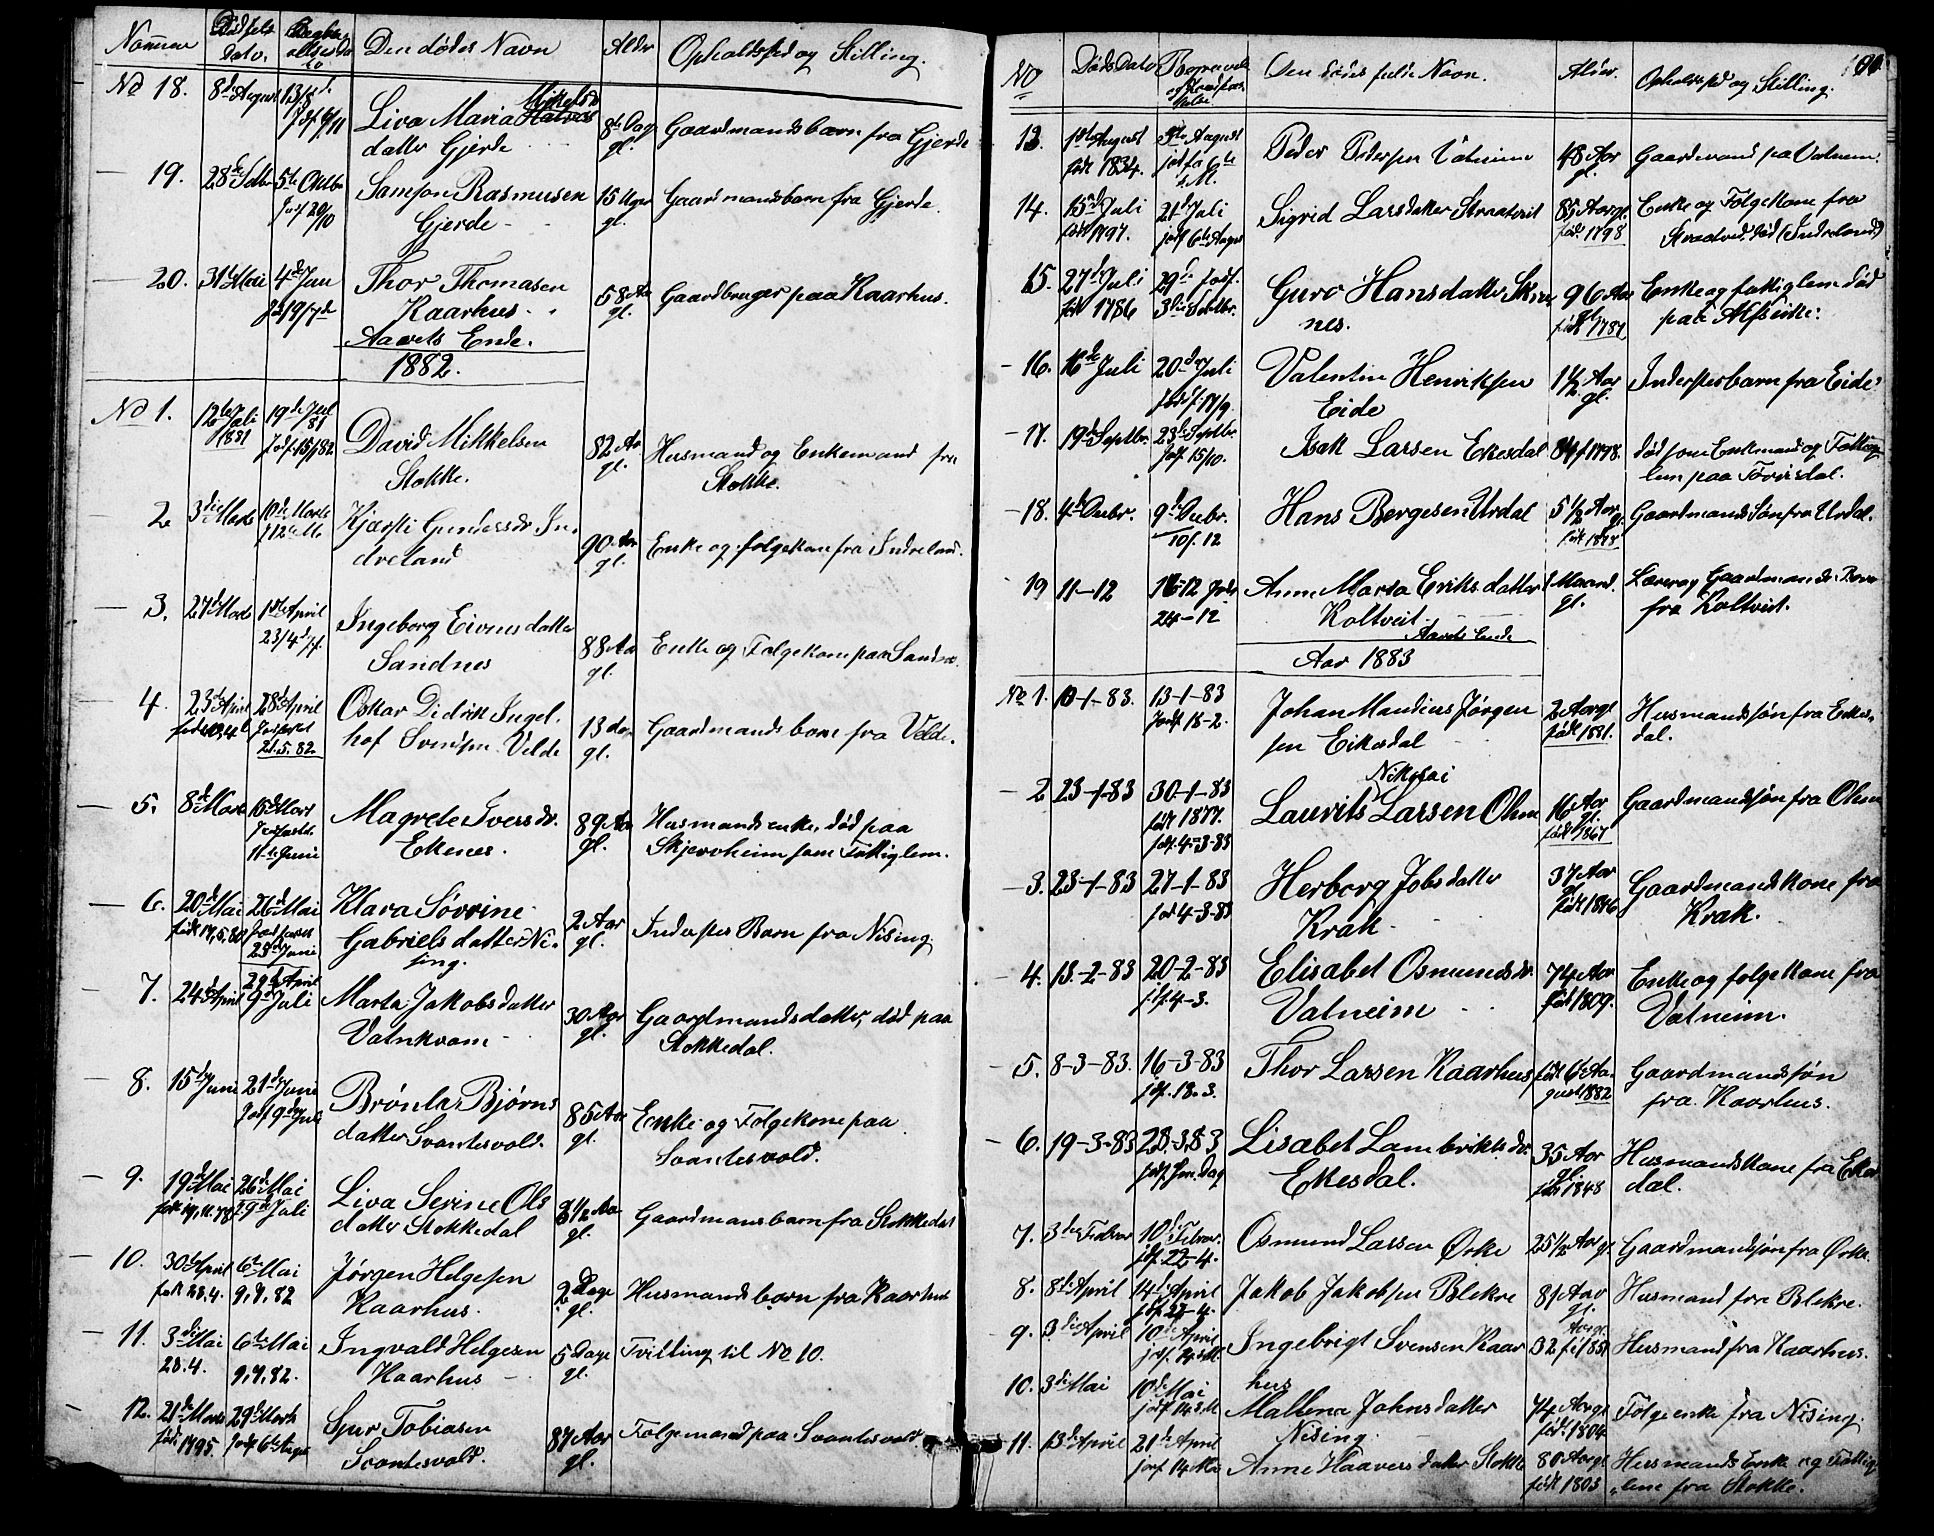 Nomer Dødsfalds Dato. Den dødes Navn Alder Opholdssted og Stilling.
No 18. 8de August 13/8 Jodf 6/11 Liva Maria Mikels datter Gjerde 8te Dage gl. Gaardmandsbarn fra Gjerde
19. 28de Septbr 5te Oktbr Jodf 20/10 Samson Rasmusen Gjerde 15 Uger gl. Gaardmandsbarn fra Gjerde.
20. 31te Mai 4de Juni Thor Thomasen Kaarhus. 58 Aar gl. Gaardbruger paa Kaarhus.
Aarets Ende.
1882.
No 1. 12te Juli 1881 19de Juli 81 David Mikkelsen Stokke. 82 Aar gl. Husmand og Enkemand fra Stokke.
2. 3die Marts 10de Marts Kjersti Gundersdr Indreland 90 Aar gl. Enke og folgekone fra Indreland.
3. 27de Marts 1ste April 23/4 Jf. Ingeborg Eivinsdatter Sandnes 88 Aar gl. Enke og Folgekone paa Sandnes
4. 23de April 28de April Jordfæstet 21.5.82. Oskar Didrik Ingelhof Svendsen Velde 13 dage gl. Gaardmandsbarn fra Velde.
5. 8de Marts 15de Mart Jordfæstet 11te Juni Magrete Iversdr. Ekenes. 89 Aar gl. Husmandsenke, død paa Skjervheim som Fattiglem.
6. 20de Mai født 17,5.80 26de Mai 25de Juni Klara Søvrine Gabrielsdatter Nising. 2 Aar gl. Inderster Barn fra Nising.
7. 24de April 29de April 9de Juli Marta Jakobsdatter Vatnkvam 30 Aar gl. Gaardmandsdatter, død paa Stokkedal.
8. 15de Juni 21de Juni Jodf 9de Juli Brønla Bjørnsdatter Svantesvold. 85 Aar gl. Enke og Folgekone paa Svantesvold.
9. 19de Mai 26de Mai 9de Juli Liva Serine Olsdatter Stokkedal 3 1/2 Aar gl. Gaardmansbarn fra Stokkedal
10. 30te April født 28.4. 6te Mai 9,7,82 Jørgen Helgesen Kaarhus. 2 Dage gl. Husmandsbarn fra Kaarhus
11. 3die Mai 28.4. 6te Mai 9,7,82. Ingvald Helgesen Kaarhus 5 Dage gl. Tvilling til No 10.
12. 21de Marts født 1795. 29de Marts Jodf 6te August Sjur Tobiasen Svantesvold. 87 Aar gl. Folgemand paa Svantesvold
No Døds Dato Den dødes fulde Navn. Alder. Opholdssted og Stilling.
13. 1ste August født 1834. August Peder Pedersen Vatneim 48 Aar gl. Gaardmand paa Vatnem.
14. 15de Juli født 1797. 21de Juli jodf 6te August Sigrid Larsdatter Straatveit 85 Aar gl. født 1798 Enke og Folgekone fra Straatveit, død (Indreland)
15. 27de Juli født 1786 29de Jodf. 3die Septbr. Guro Hansdatter Skinnes. 96 Aar gl. født 1787 Enke og fattiglem død paa Alfsvike.
16. 16de Juli 20de Juli Jodf. 17/9. Valentin Henriksen Eide 1 1/2 Aar gl. Indersterbarn fra Eide
17. 19de Septbr. 23de Septbr. Jodf. 15/10. Isak Larsen Ekesdal 84 f 1798. død som Enkemand og Fattiglem paa Tovisdal.
18. 4de Decbr. 9de Decbr. 10/.12 Hans Bergesen Urdal 5 1/2 Aar gl. født 1878 Gaardmands Søn fra Urdal.
19 11-12 16-12 Jodf 24-12 Anne Marta Eriksdatter Koltveit Maaned. gl. Lærer og Gaardmands Barn fra Koltveit.
Aarets Ende
Aar 1883
No 1. 10-1-83. 13-1-83 Jodf 18-2. Johan Mandius Jørgensen Eikesdal 2 Aar gl. født 1881. Husmandsøn fra Eikesdal.
2 23-1-83 30-1-83 født 1877. jodf. 4-3-83 Laurits Nikolai Larsen Ohm 16 Aar gl. født 1867 Gaardmandsøn fra Ohm
3. 23-1-83 27-1-83 jod 4-3-83 Herborg Jobsdatter Krak 37 Aar gl. født 1846 Gaardmandskone fra Krak.
4. 13-2-83 20-2-83 jdf. 4-3. Elisabet Osmundsdr. Vatneim 74 Aar født 1809. Enke og folgekone fra Vatneim.
5. 8-3-83. 16-3-83 jdf. 18.3. Thor Larsen Kaarhus født 6te August 1882 Gaardmandssøn fra Kaarhus.
6. 19-3-83 28.3.83 jdf. sam. Dag Lisabet Lambriktsdr. Ekesdal. 35 Aar gl. født 1848 Husmandskone fra Ekesdal.
7. 3die Febrar 10de Februar. jdf. 22-4. Osmund Larsen Ørke 25 1/2 Aar gl. Gaardmandsøn fra Ørke.
8. 8de April 14de April jdf. 22-4. Jakob Jakobsen Blekre 81 Aar gl. Husmand fra Blekre.
9. 3die April 10de April Ingebrigt Svensen Kaarhus 32 Aar gl. f. 1851 Husmand fra Kaarhus.
10. 3die Mai 10de Mai Mallena Johnsdatter Nising. 79 Aar gl. født 1804 Folgeenke fra Nising.
11. 13de April 21de April jorf 14 Mai Anne Haaversdatter Stokke 80 Aar gl. født 1803 Husmands Enke og Fattiglem fra Stokke.